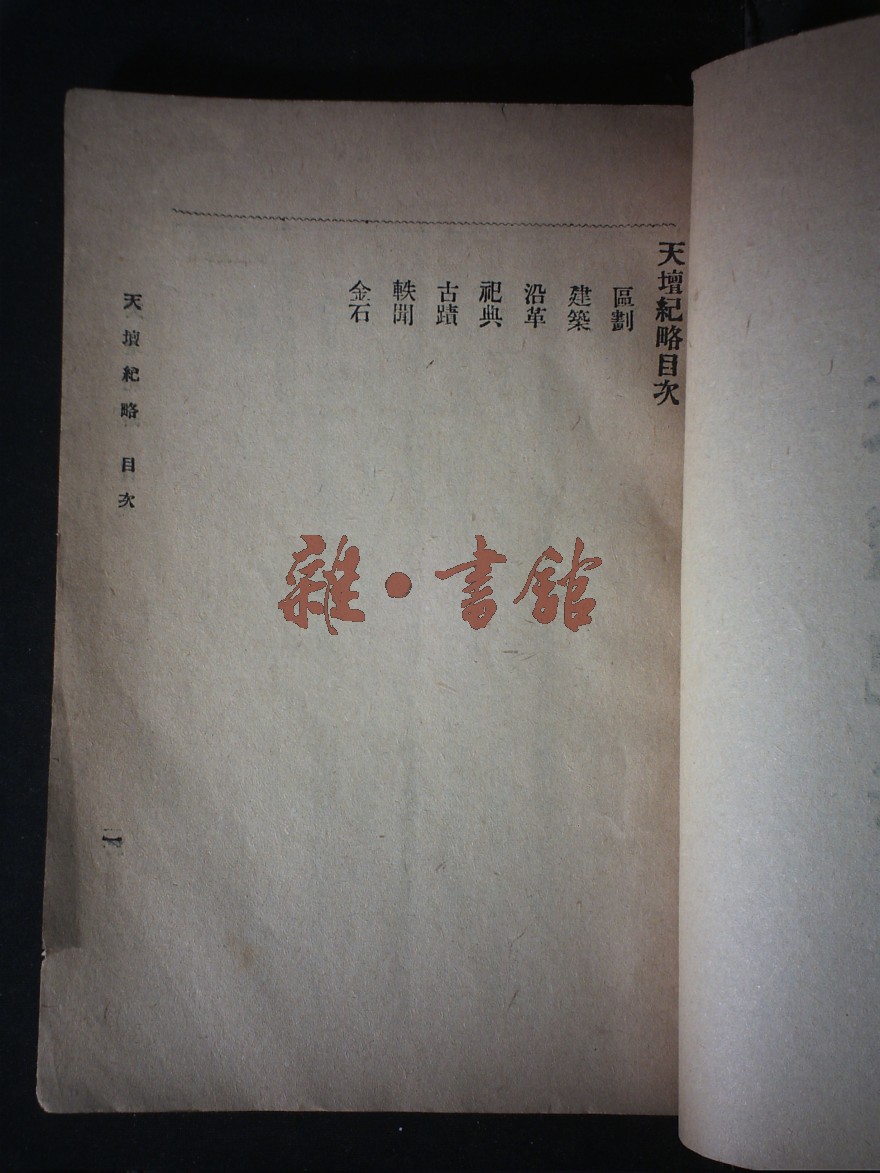 天壇紀略目次
區劃
建築
沿革
祀典
古蹟
軼聞
金石
天壇紀略 目次
雜·書館